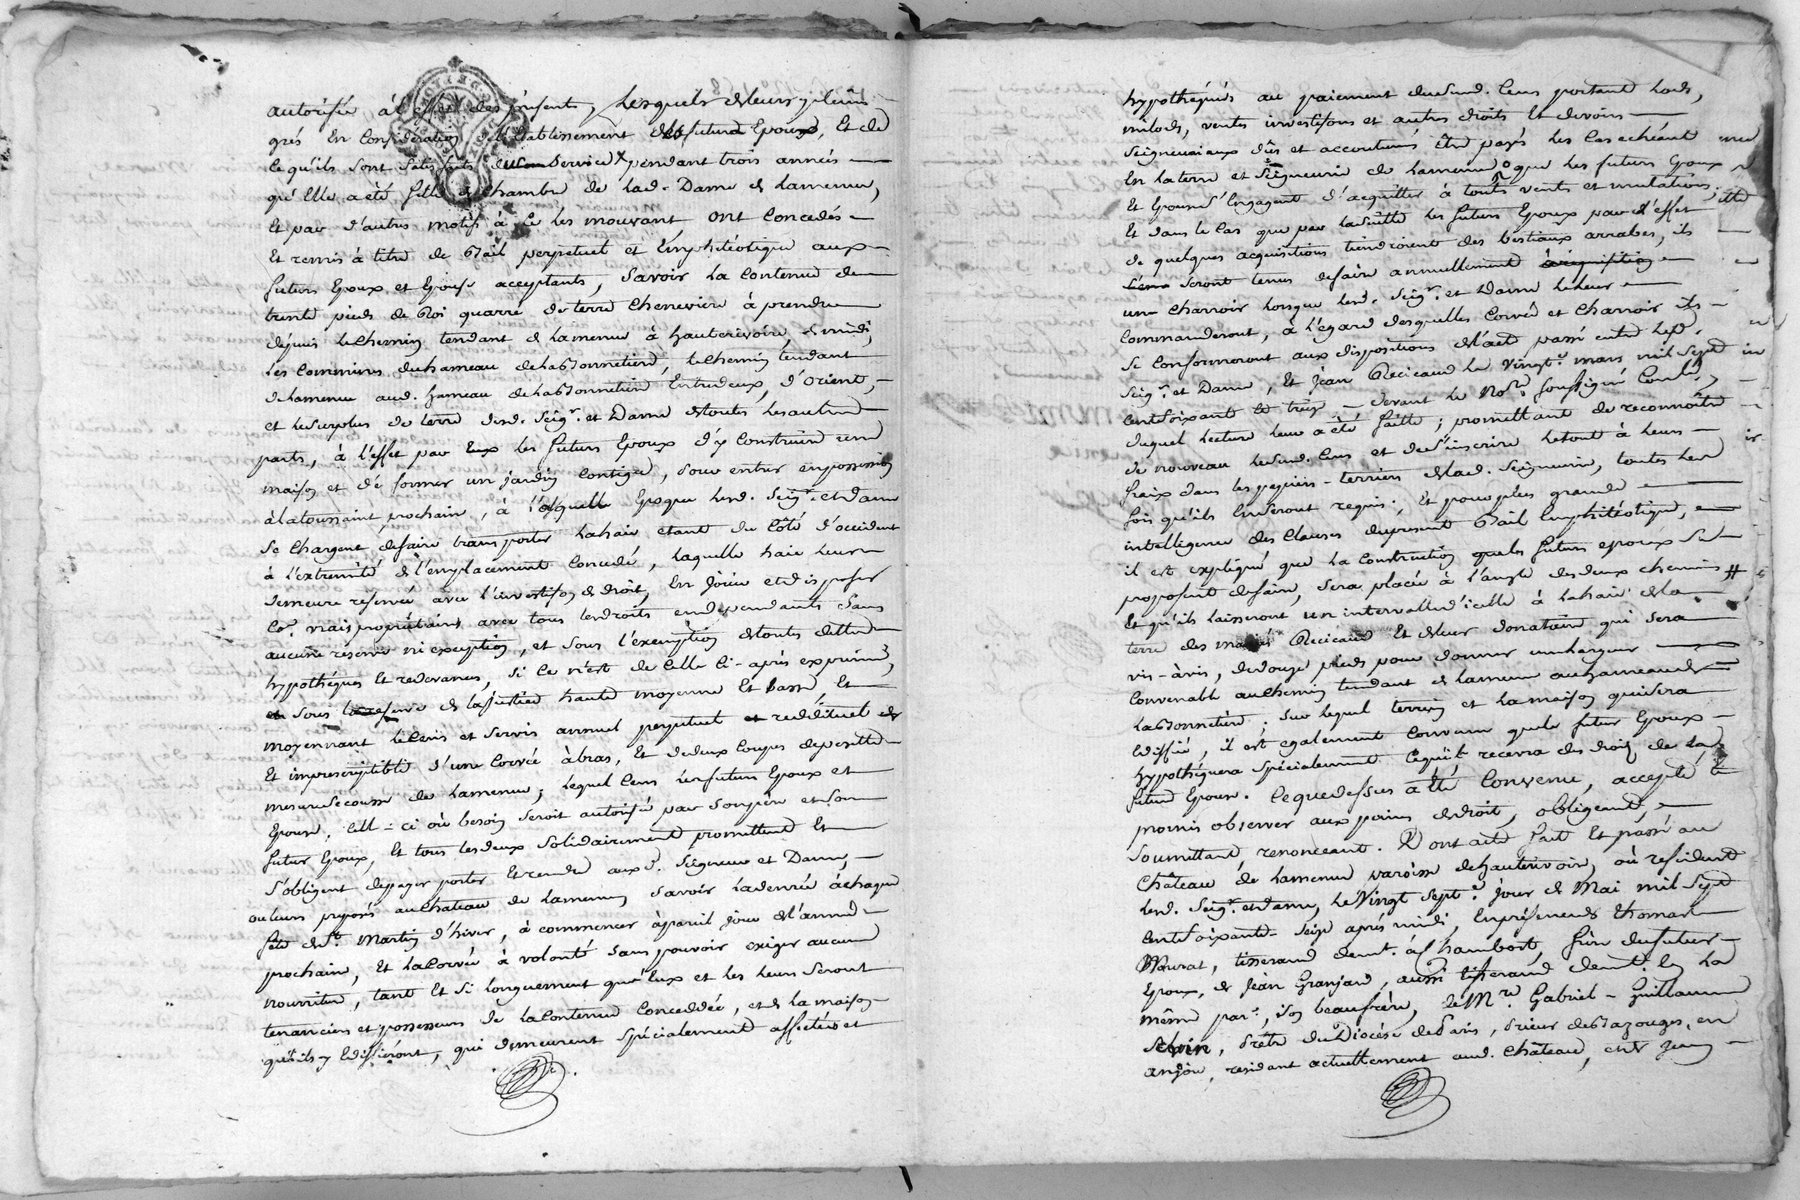 autorisée, à l'effet des présentes, Lesquels de leurs pleins
grés En Considération de l'Etablissement des futurs Epoux, Et de
ce qu'ils sont satisfaits du Service pendant trois années
qu'Elle a été fille de Chambre de lad. Dame de Lamenue,
Et par d'autres motifs à ce les mouvant ont Concédés
Et remis à titre de Bail perpetuel et Emphitéotique aux
futurs Epoux et Epouse acceptants, Savoir La Contenue de
trente pieds de Roi quarré de terre Cheneviere à prendre
depuis le Chemin tendant de Lamenue à hauterivoire, de midi,
Les Communes du hameau de la Bonnetiere, le Chemin tendant
de Lamenue aud. hameau de la Bonnetiere Entredeux, d'orient,
et le Surplus de terre desd. Seigr. et Dame de toutes les autres
parts, à l'effet par Eux les futurs Epoux d'y Construire une
maison et d'é former un jardin Contigu, pour entrer en possession
à la toussaint prochain, à l'aquelle Epoque lesd. Seigr. et dame
Se Chargent de faire transporter la haie étant du Côté d'occident
à l'extremité de l'emplacement Concedé, laquelle haie leur
demeure réservée avec l'investison de droit, En joüir et disposer
Co. vrais proprietaires avec tous les droits en dependants Sans
aucune réserve ni exception, et Sous l'exemption de toutes dettes
hypothéques Et redevances, Si Ce n'est de Celle Ci-après exprimée,
Sous la reserve de la justice haute moyenne Et basse, Et
moyennant le Cens et Servis annuel perpetuel et reddituel et
Et imprescriptible d'une Corvée à bras, Et de deux Coupes de
mesure Secousse de Lamenue; lequel Cens les futurs Epoux et
Epouse, Elle-ci où besoin Seroit autorisée par Son père et Son
futur Epoux, Et tous les deux Solidairement promettent Et
S'obligent de payer porter Et rendre auxd. Seigneur et Dame,
ou leurs préposés au Chateau de Lamenue Savoir la denrée à chaque
fête de St. Martin d'hiver, à commencer à pareil jour de l'année
prochaine, Et la Corvée à volonté Sans pouvoir exiger aucune
nourriture, tant Et Si longuement qu'Eux et les leurs Seront
tenanciers et possesseurs de la Contenue Concedée, et de la maison
qu'ils y Edifieront, qui demeurent Spécialement affectées et
hypothéquées au paiement dud. Cens portant Lods,
milods, ventes investisons et autres droits Et devoirs
Seigneuriaux dûs et accoutumés Etre payés les Cas echéant
En la terre et Seigneurie de Lamenue que les futurs Epoux
Et Epouse S'Engagent d'acquitter à toutes ventes et mutations;
Et dans le Cas que par la Suitte les futurs Epoux par l'effet
de quelques acquisitions tiendroient des bestiaux arrables, ils
Seront tenus de faire annuellement
un Charroir lorsque lesd. Seigr. et Dame le leur
Commanderont, à l'égard desquelles Corvée et Charroir ils
Se Conformeront aux dispositions de l'acte passé entre lesd.
Seigr. et Dame, Et Jean Recicaud Le Vingt. mars mil Sept
Cent Soixante et treize devant le Nore. Soussigné
duquel lecture leur a été faitte; promettant de reconnoître
de nouveau led. Cens et de S'inscrire le tout à leurs
fraix dans les papiers-terriers de lad. Seigneurie, toutes les
fois qu'ils En Seront requis; Et pour plus grande
intelligence des Clauses du present Bail Emphitéotique,
il est expliqué que la Construction que les futurs epoux Se
proposent de faire, Sera placée à l'angle des deux chemins #
Et qu'ils laisseront un intervalle d'icelle à la haie de la
terre des mariés Recicaud Et de leur donataire qui Sera
vis-à-vis, de douze pieds, pour donner une largeur
Convenable au Chemin tendant de Lamenue au hameau de
La Bonnetiere; Sur lequel terrein et la maison qui Sera
Edifiée, il est également Convenu que le futur Epoux
hypothéquera Spécialement Ce qu'il recevra des droits de la
future Epouse. Ce que dessus a été Convenu, accepté Et
promis observer aux peines de droit, obligeant,
Soumettant, renonceant. Dont acte fait Et passé au
Château de Lamenue paroisse de hauterivoire, où resident
lesd. Seigr. et dame, Le Vingt Sept. jour de Mai mil Sept
Cent Soixante-Seize après midi, En présences de thomas
Maurat, tisserand demt. à Chambort, frère du futur
Epoux, de jean Granjard, aussi tisserand demt. En La
même par., Son beaufrère, de Mre. Gabriel-Guillaume
, Prêtre du Diocése de Paris, Prieur de Bazouges, en
anjou, residant actuellement aud. Château, et de Jean